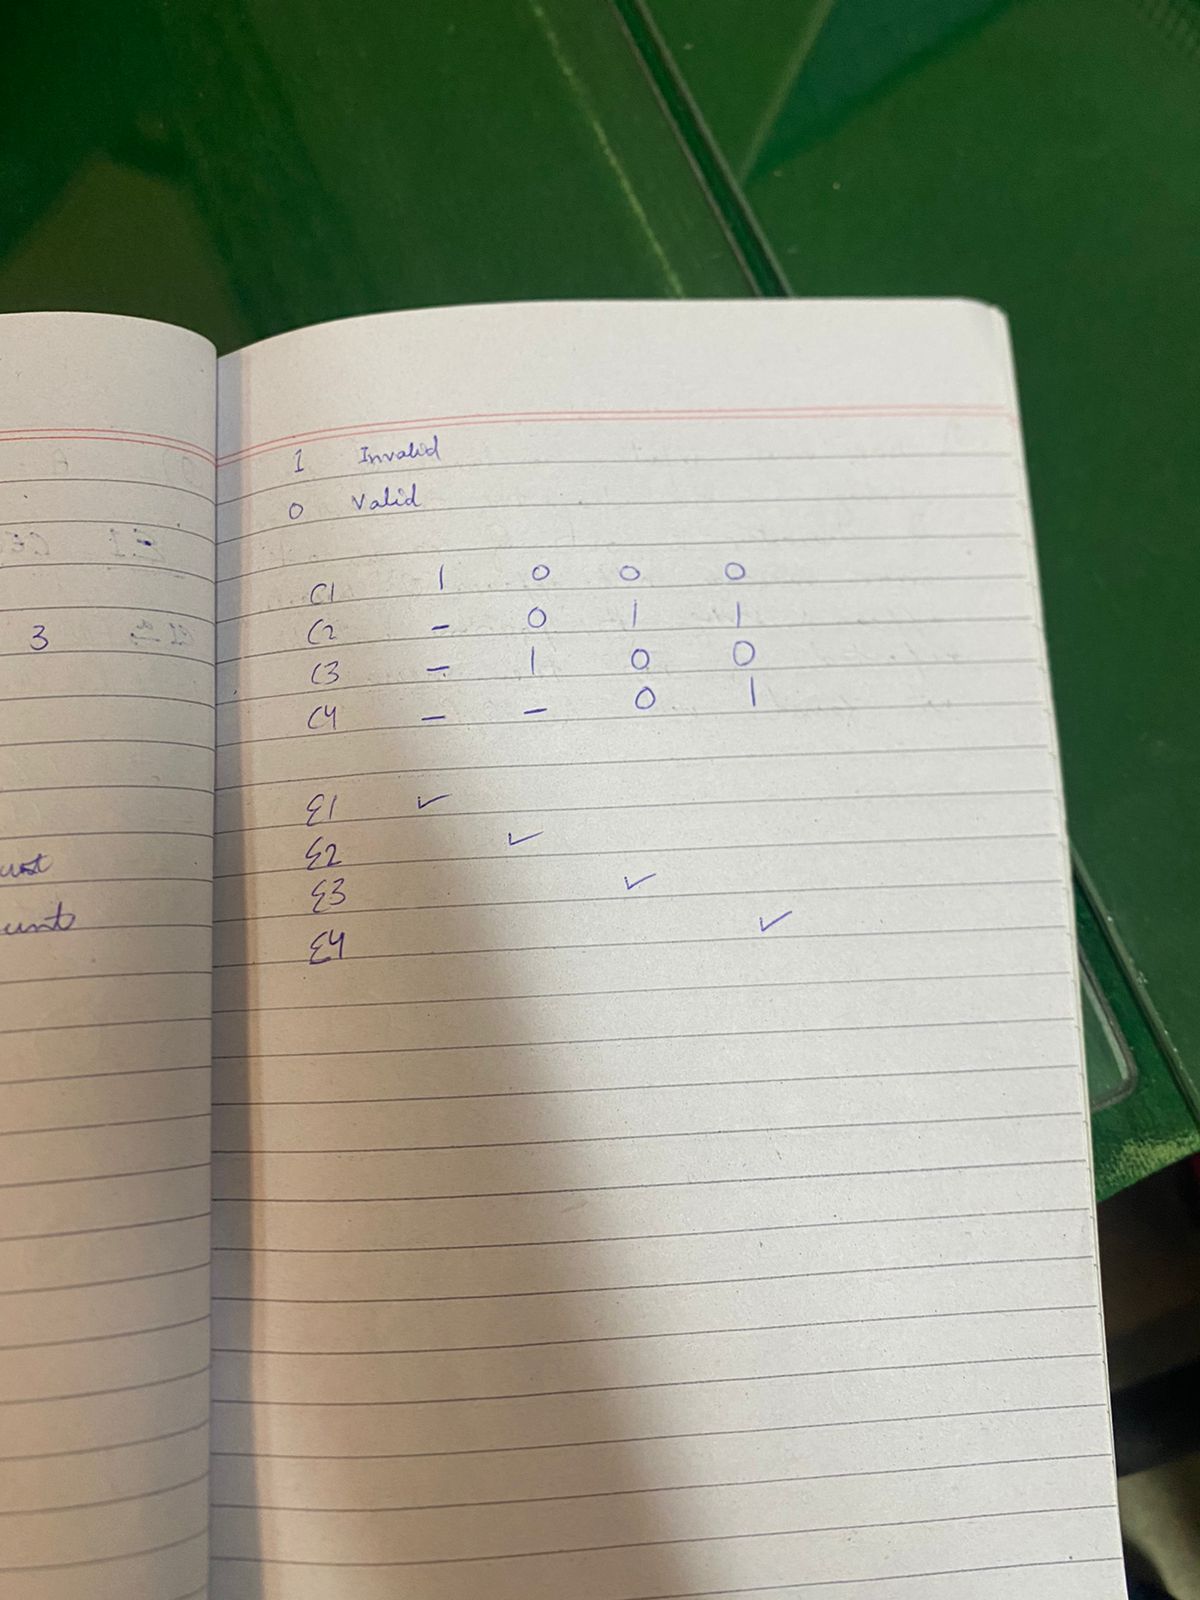 3
1 Invalid
0 Valid
C1 1 0 0 0
C2 - 0 1 1
C3 - 1 0 0
C4 - - 0 1
E1 ✓
E2 ✓
E3 ✓
E4 ✓